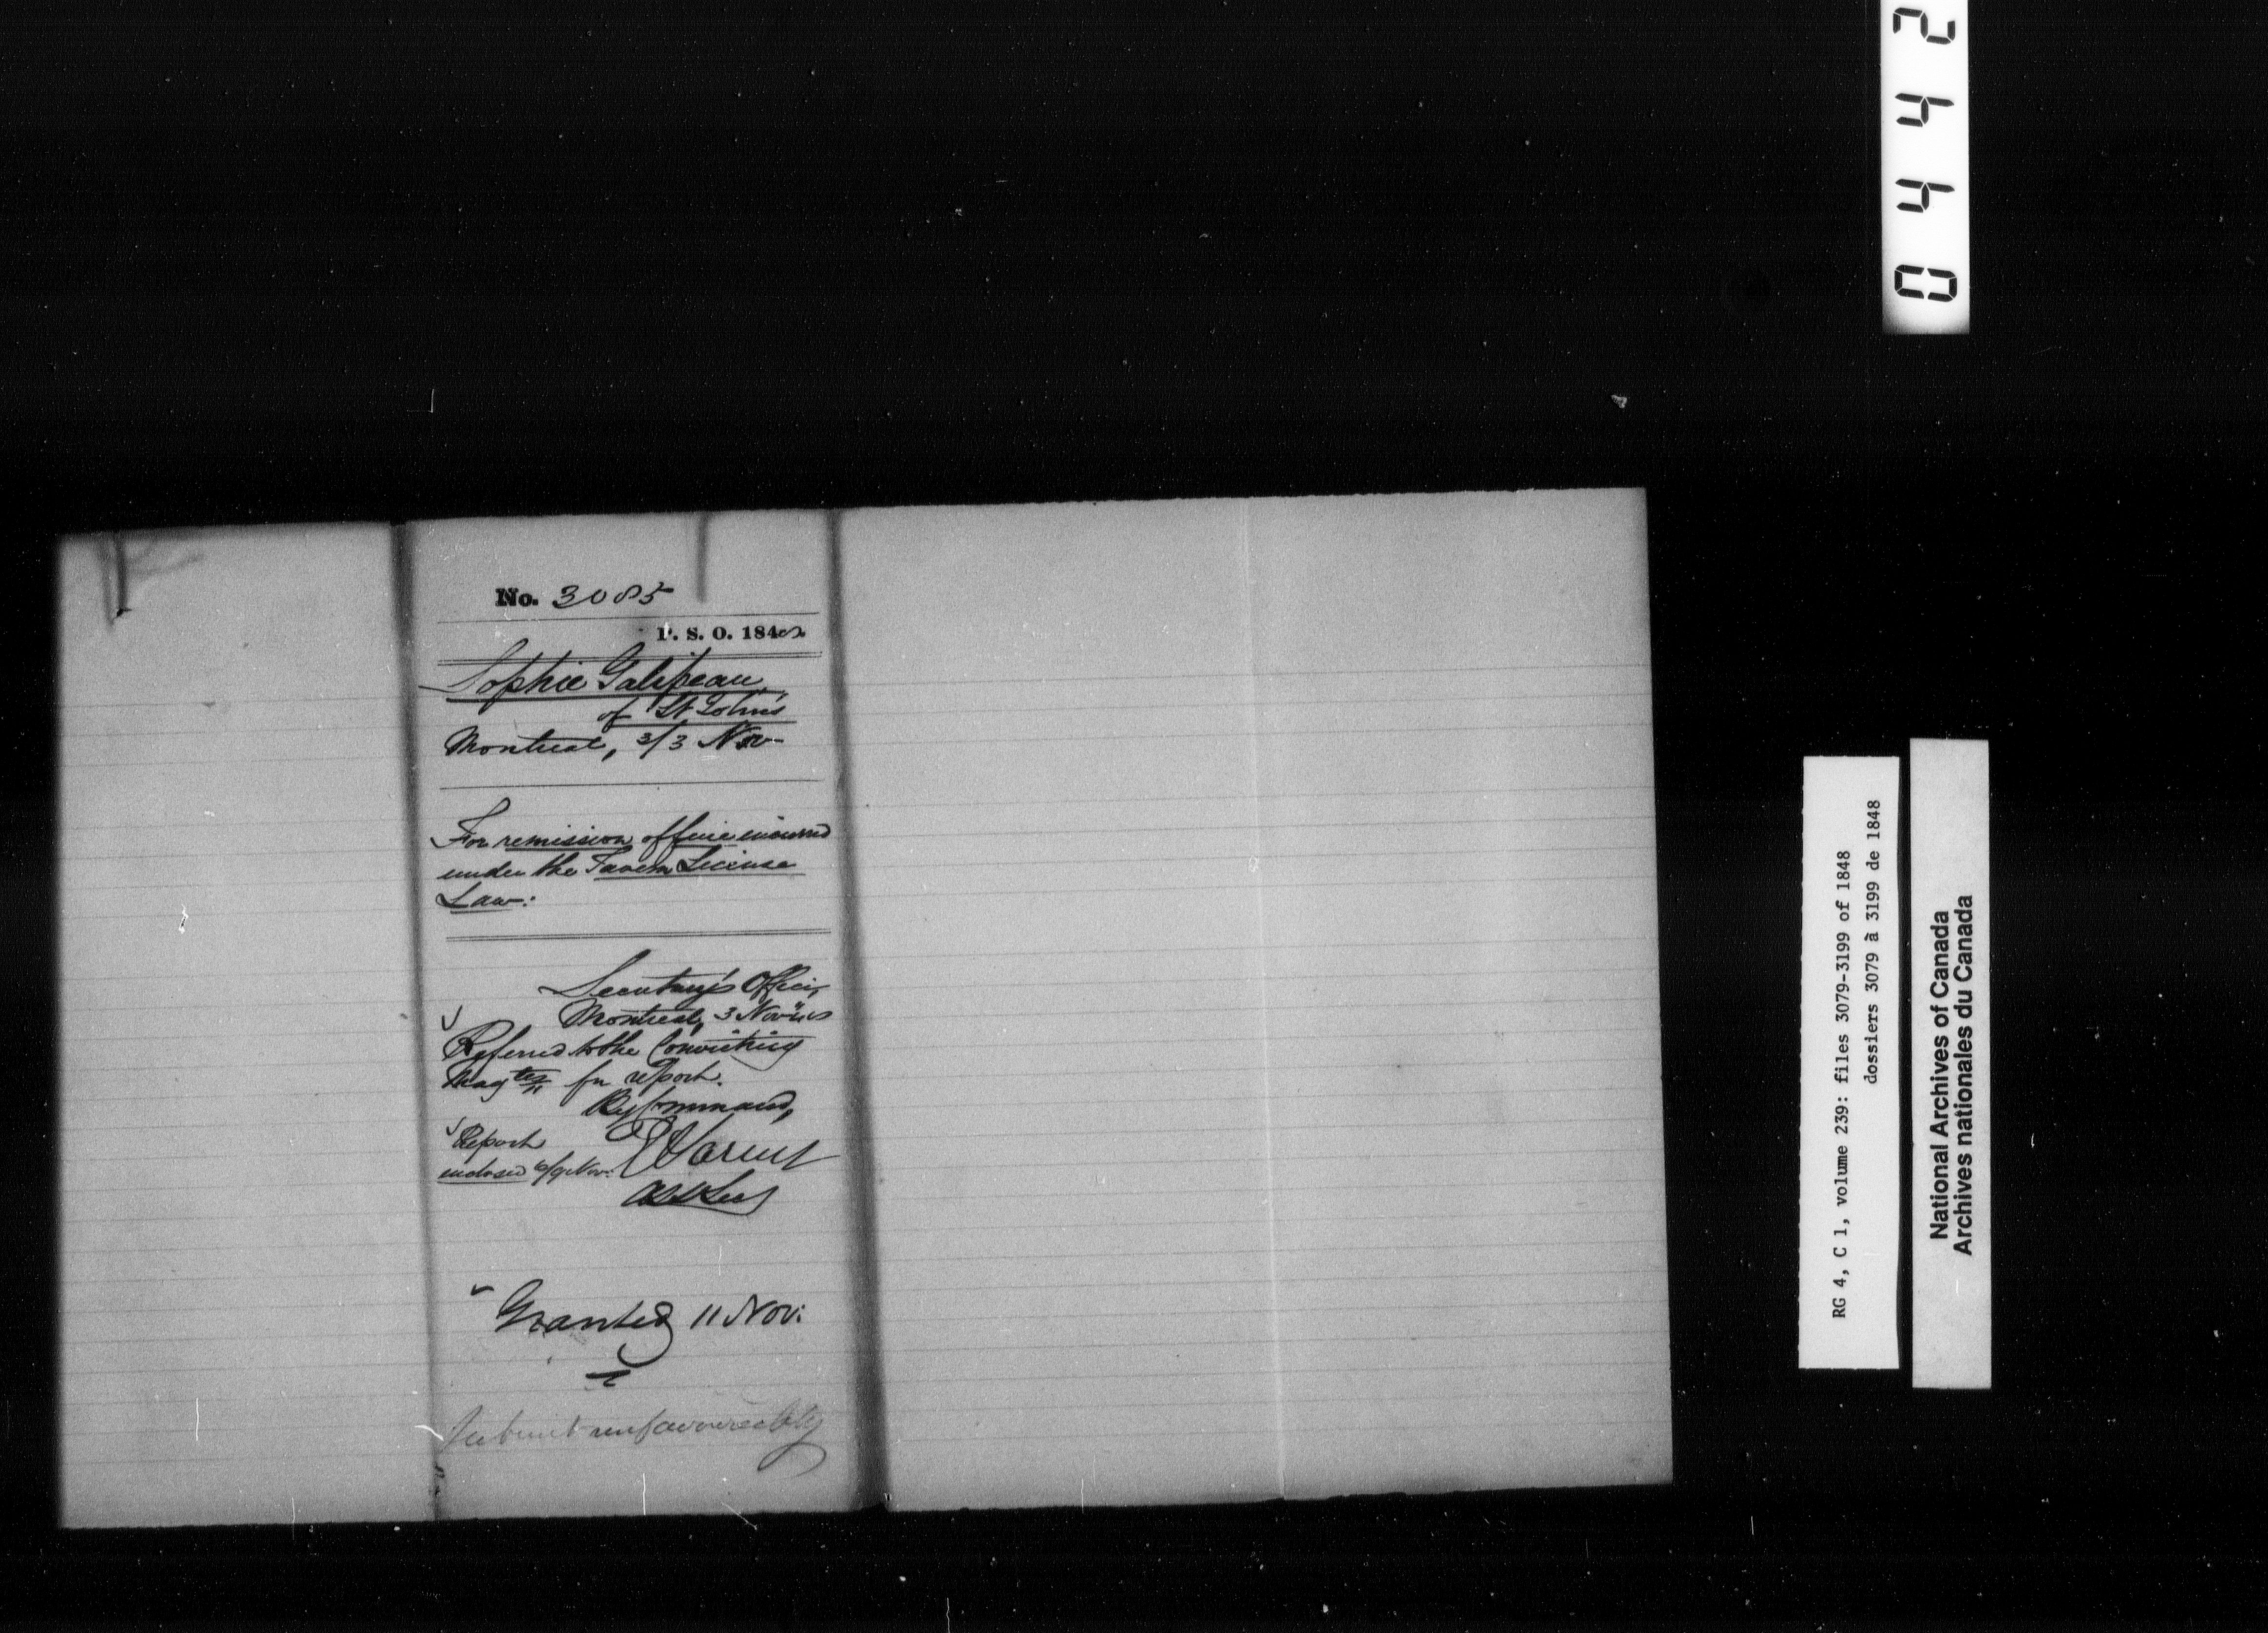 No. 3085
P. S. O. 1848
Sophie Galipeau
of St John's
Montreal, 3/3 Nov-
For remission of fine incurred
under the Tavern License
Law:
Secretary's Office,
Montreal, 3 Nov
Referred to the Convicting
Magtes for report.
By Command,
Report
enclosed 6/9 Nov:
E Parent
Asst Secy
Granted 11 Nov:
Submit unfavourably
0442
RG 4, C 1, volume 239: files 3079-3199 of 1848
dossiers 3079 à 3199 de 1848
National Archives of Canada
Archives nationales du Canada